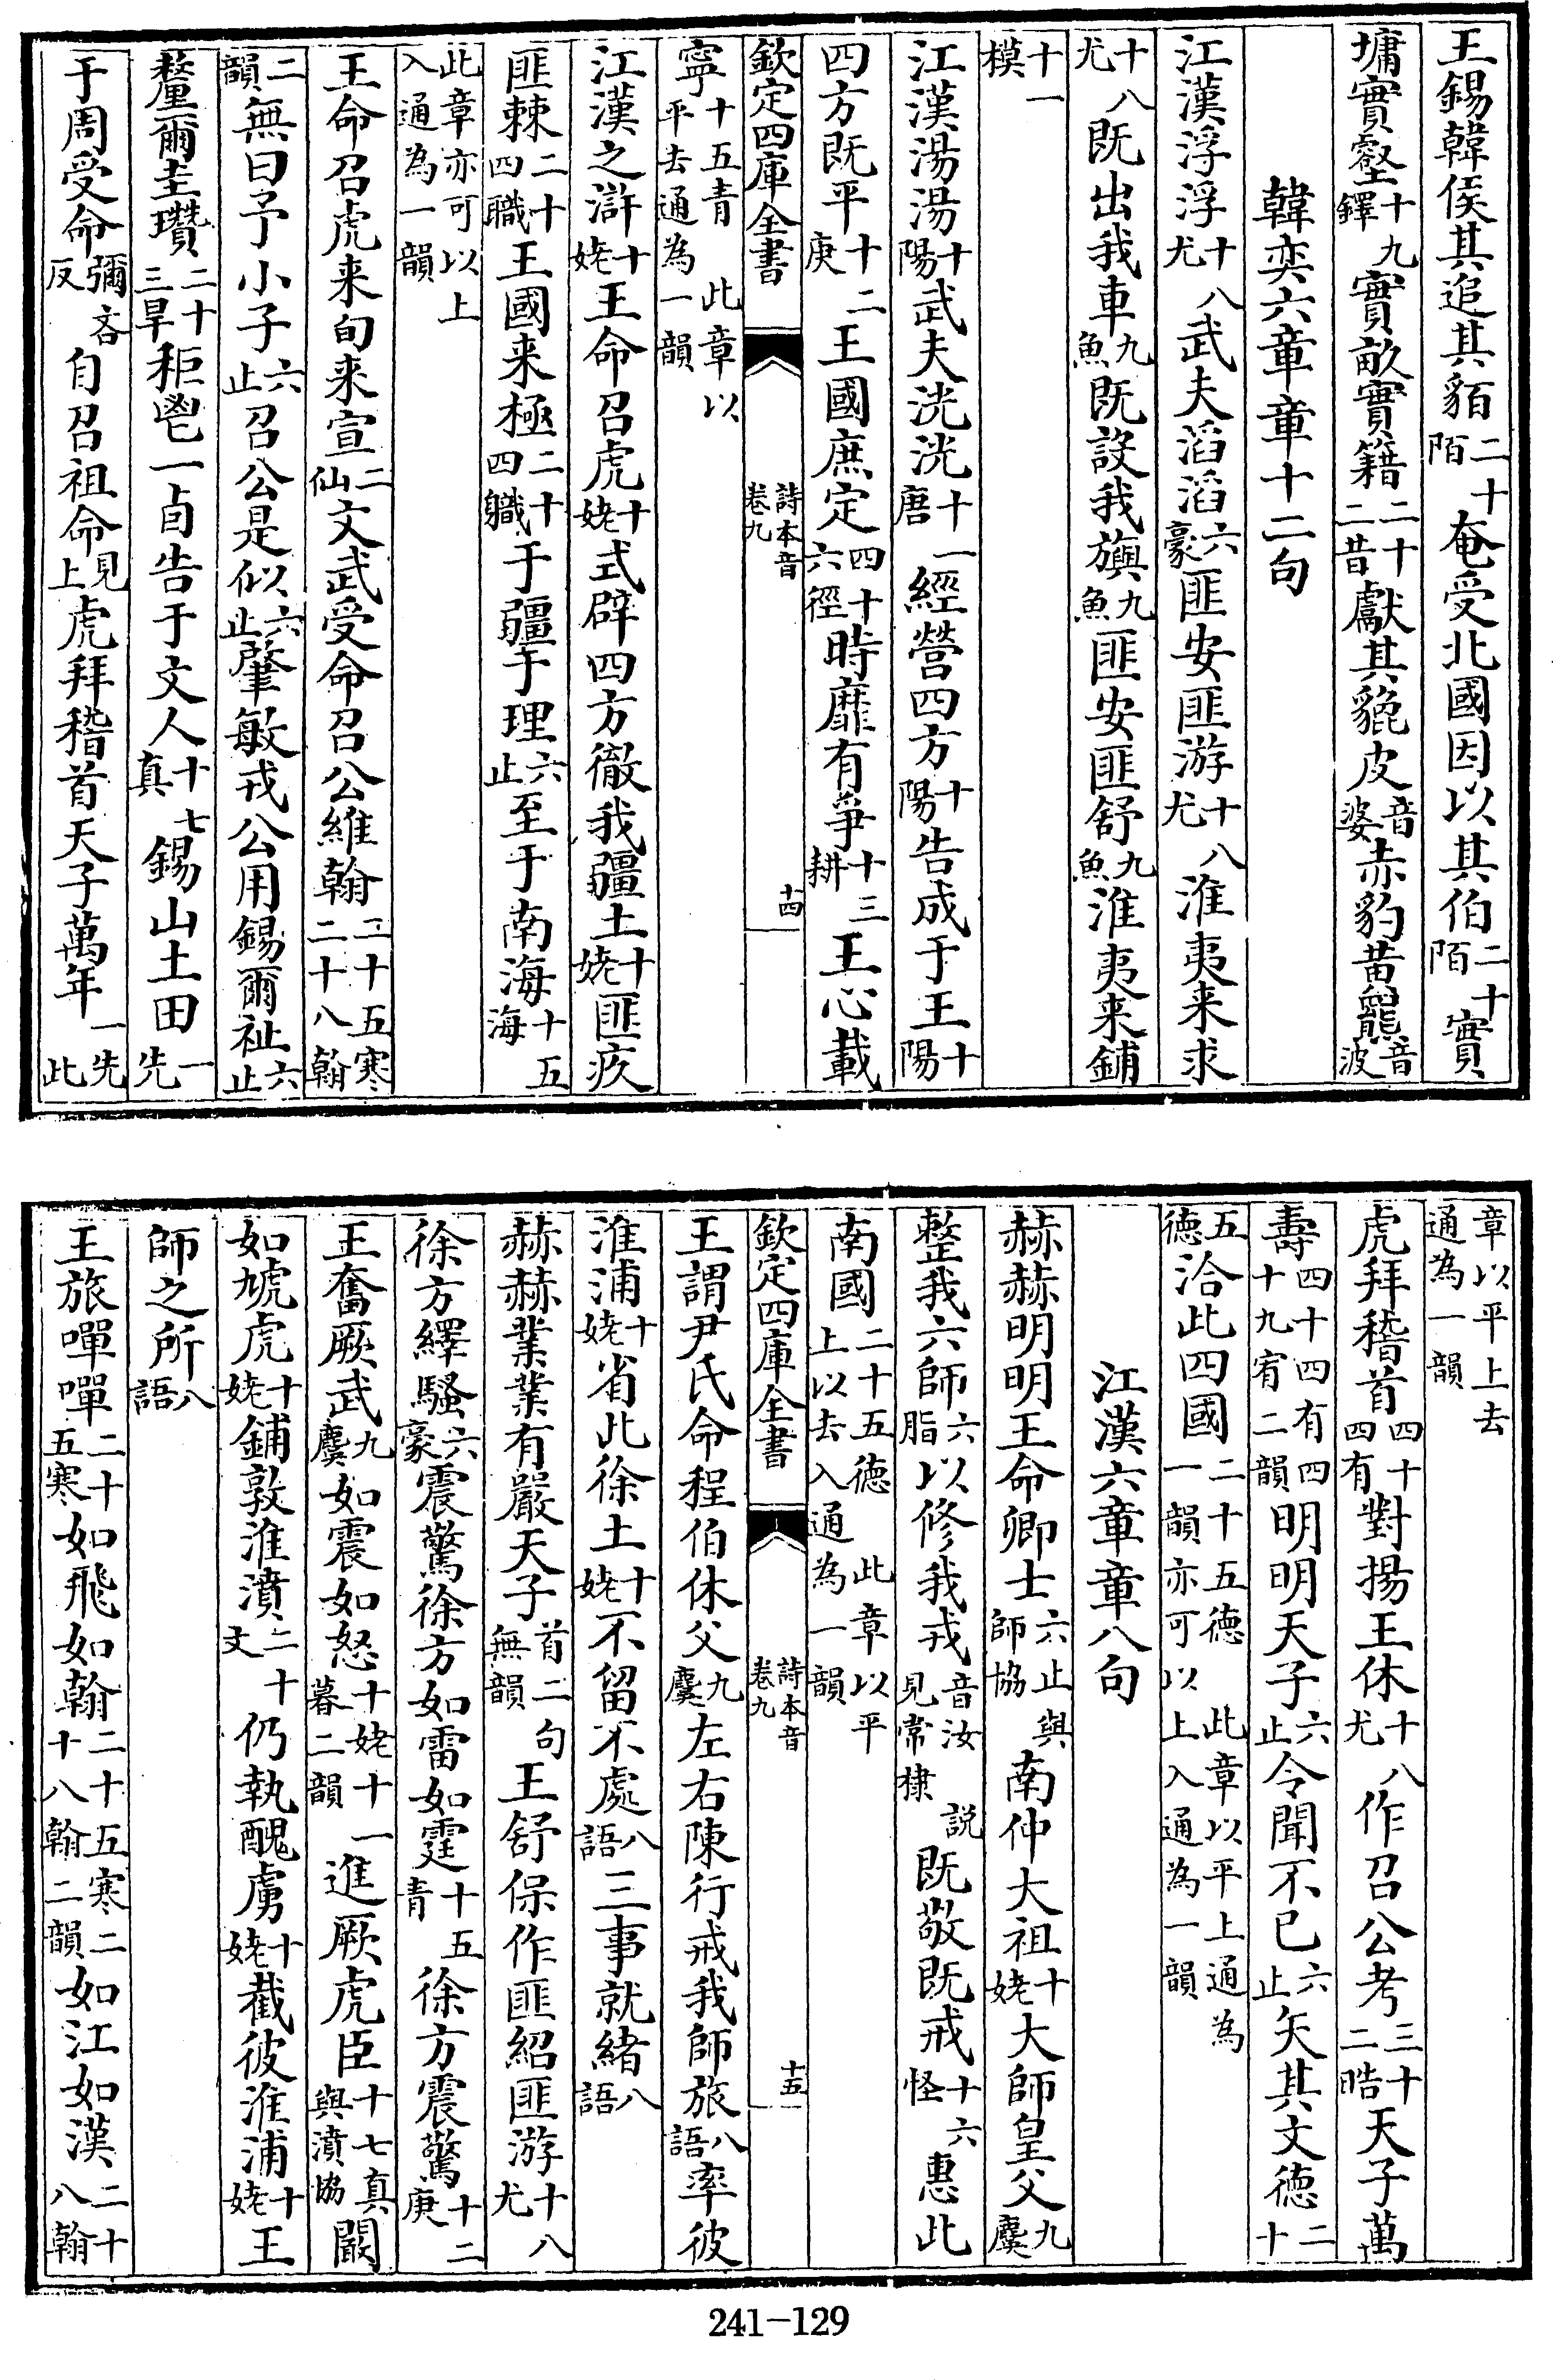 王錫韓侯其追其貊二十陌奄受北國因以其伯二十陌實
墉實壑十九鐸實畝實籍二十二昔獻其貔皮音婆赤豹黃羆音波
韓奕六章章十二句
江漢浮浮十八尤武夫滔滔六豪匪安匪游十八尤淮夷来求
十八尤既出我車九魚既設我旟九魚匪安匪舒九魚淮夷来鋪
十一模
江漢湯湯十陽武夫洸洸十一唐經營四方十陽告成于王十陽
四方既平十二庚王國庶定四十六徑時靡有爭十三耕王心載
欽定四庫全書 詩本音卷九 十四
寧十五青平去通為一韻 此章以
江漢之滸十姥王命召虎十姥式辟四方徹我疆土十姥匪疚
匪棘二十四職王國来極二十四職于疆于理六止至于南海十五海
此章亦可以上入通為一韻
王命召虎来旬来宣二仙文武受命召公維翰二十五寒二十八翰
二韻無曰予小子六止召公是似六止肇敏戎公用錫爾祉六止
釐爾圭瓚二十三旱秬鬯一卣告于文人十七真錫山土田一先
于周受命彌吝反自召祖命見上虎拜稽首天子萬年一先此
章以平上去通為一韻
虎拜稽首四十四有對揚王休十八尤作召公考三十二晧天子萬
壽四十四有四十九宥二韻明明天子六止令聞不已六止矢其文德二十
五德洽此四國二十五德 此章以平上通為一韻亦可以上入通為一韻
江漢六章章八句
赫赫明明王命卿士六止與師協南仲大祖十姥大師皇父九麌
整我六師六脂以修我戎音汝見常棣說既敬既戒十六怪惠此
南國二十五德 此章以平上以去入通為一韻
欽定四庫全書 詩本音卷九 十五
王謂尹氏命程伯休父九麌左右陳行戒我師旅八語率彼
淮浦十姥省此徐土十姥不留不處八語三事就緒八語
赫赫業業有嚴天子首二句無韻王舒保作匪紹匪游十八尤
徐方繹騷六豪震驚徐方如雷如霆十五青徐方震驚十二庚
王奮厥武九麌如震如怒十姥十一暮二韻進厥虎臣十七真與濆協闞
如虓虎十姥鋪敦淮濆二十文仍執醜虜十姥截彼淮浦十姥王
師之所八語
王旅嘽嘽二十五寒如飛如翰二十五寒二十八翰二韻如江如漢二十八翰
241-129